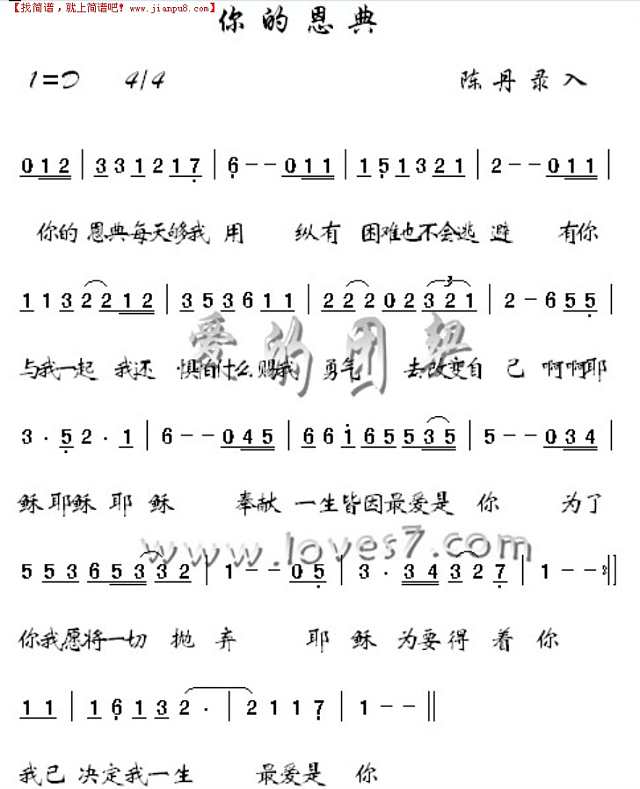 【找简谱，就上简谱吧! www.jianpu8.com】
你的恩典
1=D 4/4 陈丹录入
0 1 2 | 3 3 1 2 1 7 | 6 - - 0 1 1 | 1 5 1 3 2 1 | 2 - - 0 1 1 |
你的 恩典每天够我 用 纵有 困难也不会逃 避 有你
1 1 3 2 2 1 2 | 3 5 3 6 1 1 | 2 2 2 0 2 3 2 1 | 2 - 6 5 5 |
与我一起 我还 惧怕什么 赐我 勇气 去改变自 己 啊啊耶
爱的团契
3 · 5 2 · 1 | 6 - - 0 4 5 | 6 6 i 6 5 5 3 5 | 5 - - 0 3 4 |
稣 耶稣 耶 稣 奉献 一生皆因最爱是 你 为了
www.loves7.com
5 5 3 6 5 3 3 3 2 | 1 - - 0 5 | 3 · 3 4 3 2 7 | 1 - - :||
你我愿将一切 抛 弃 耶 稣 为要 得 着 你
1 1 | 1 6 1 3 2 · | 2 1 1 7 | 1 - - ||
我已 决定我一生 最爱是 你